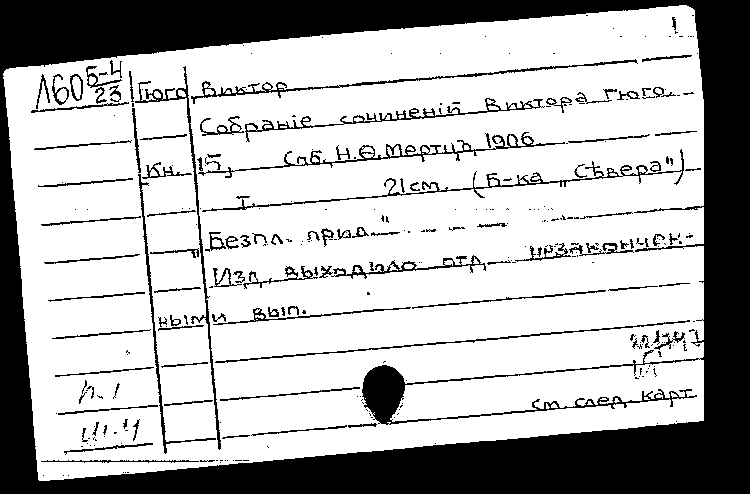 1
Л60 Б-4/23 Гюго, Виктор
Собраніе сочиненій Виктора Гюго.
Кн. 15, Спб, Н.Ѳ.Мертцъ, 1906.
т. 21см. (Б-ка „Сѣвера")
„Безпл. прид." - - - -
Изд. выходило отд. незакончен-
ными вып.
п.1
см. след. карт